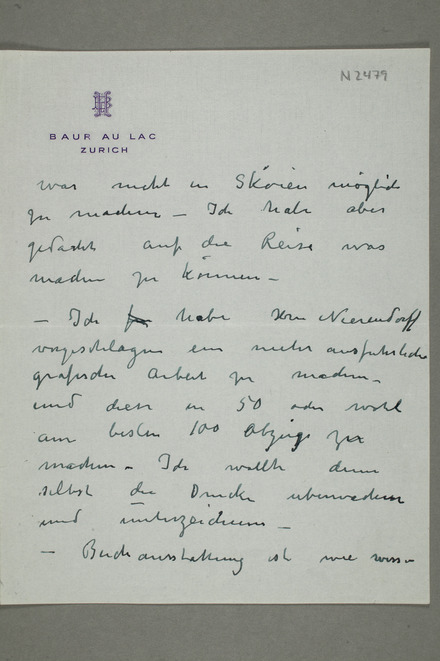 N2479
BAUR AU LAC
ZURICH
was nicht in Skoien möglich
zu machen – Ich habe aber
gedacht auf die Reise was
machen zu können –
– Ich habe Herrn Nierendorff
vorgeschlagen ein mehr ausführliche
grafische Arbeit zu machen –
und diese in 50 oder wohl
am besten 100 Abzüge zu
machen – Ich wollte dann
selbst die Drucke überwachen
und unterzeichnen –
– Buchausstattung ist wie